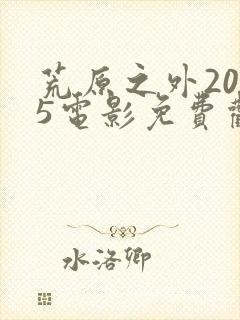 荒原之外20
5電影免費
水洛卿